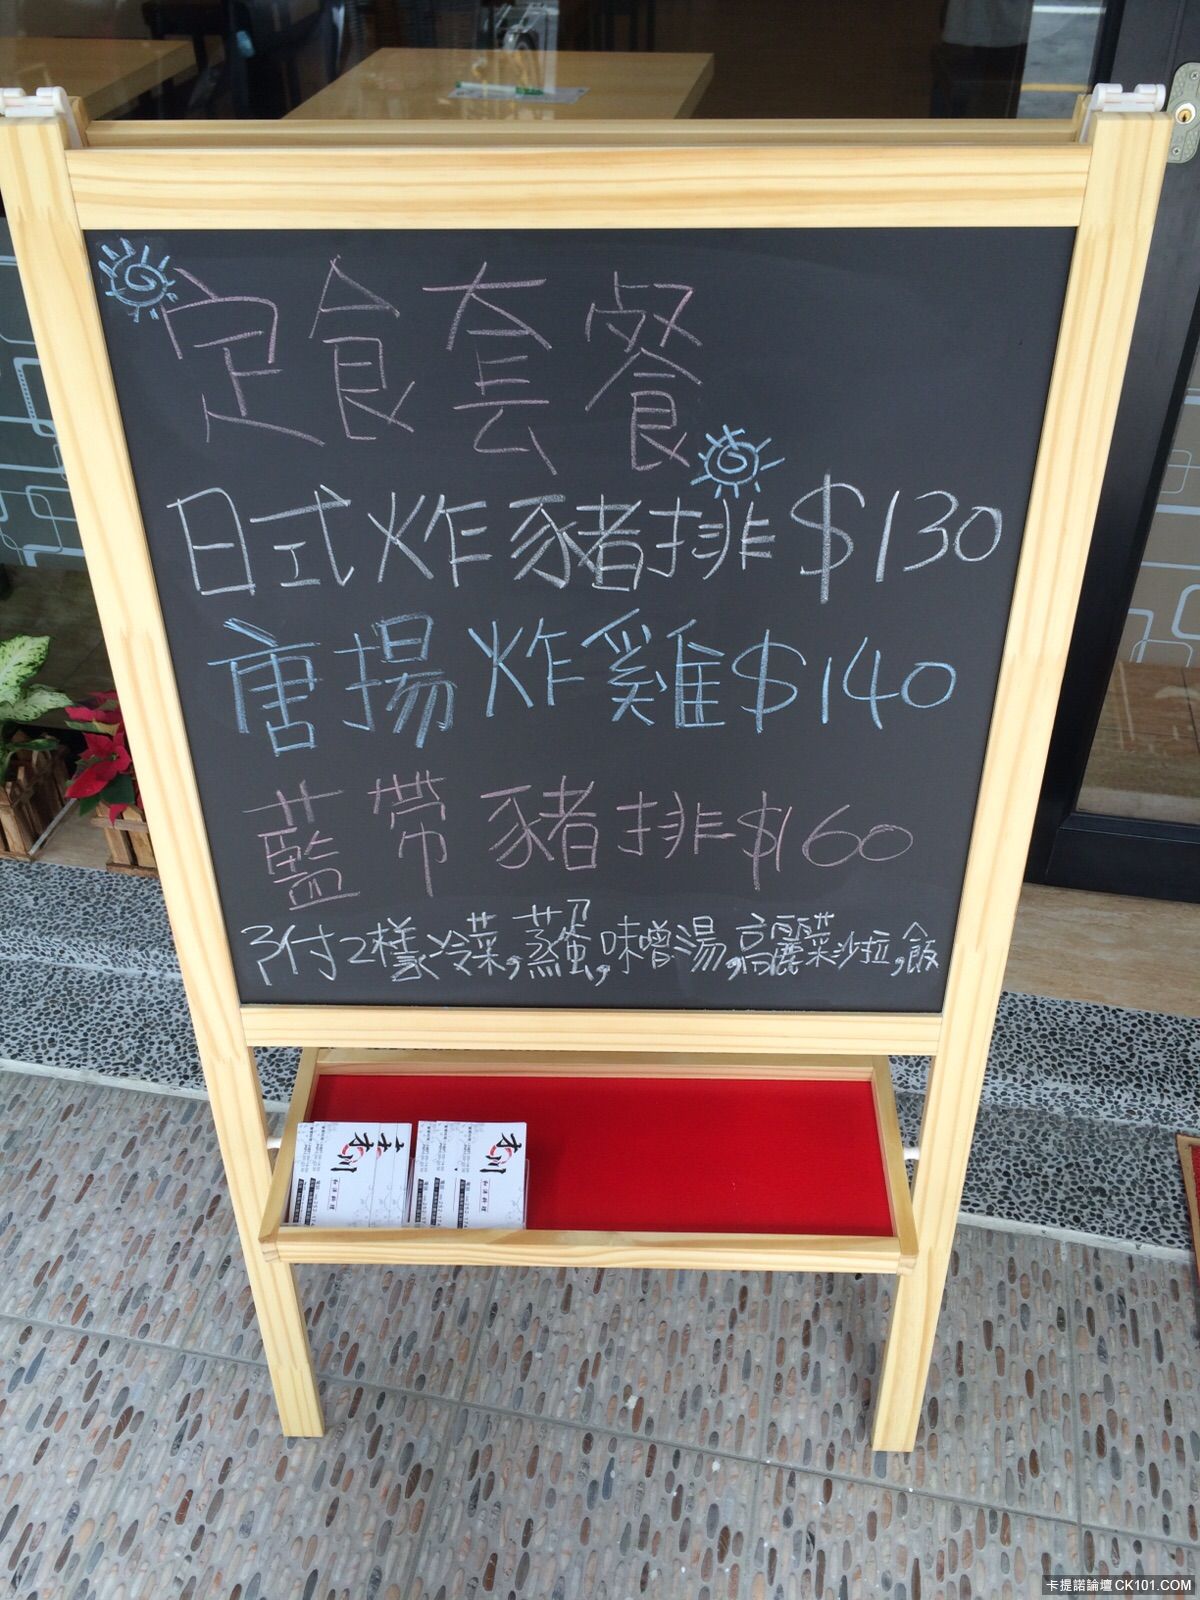 定食套餐
日式炸豬排$130
唐揚炸雞$140
藍帶豬排$160
付2樣冷菜,蒸蛋,味噌湯,高麗菜沙拉,飯
卡提諾論壇 CK101.COM